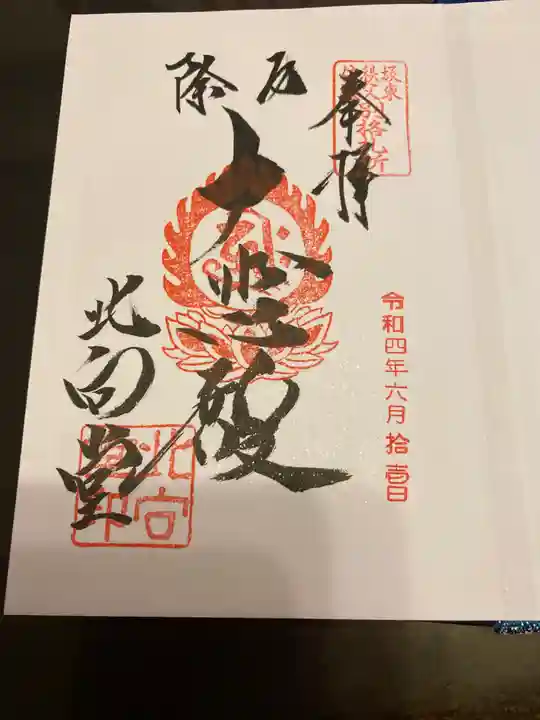 坂東
秩父
別格札所
奉拝
令和四年六月拾壱日
厄除
大悲殿
北向堂
北向